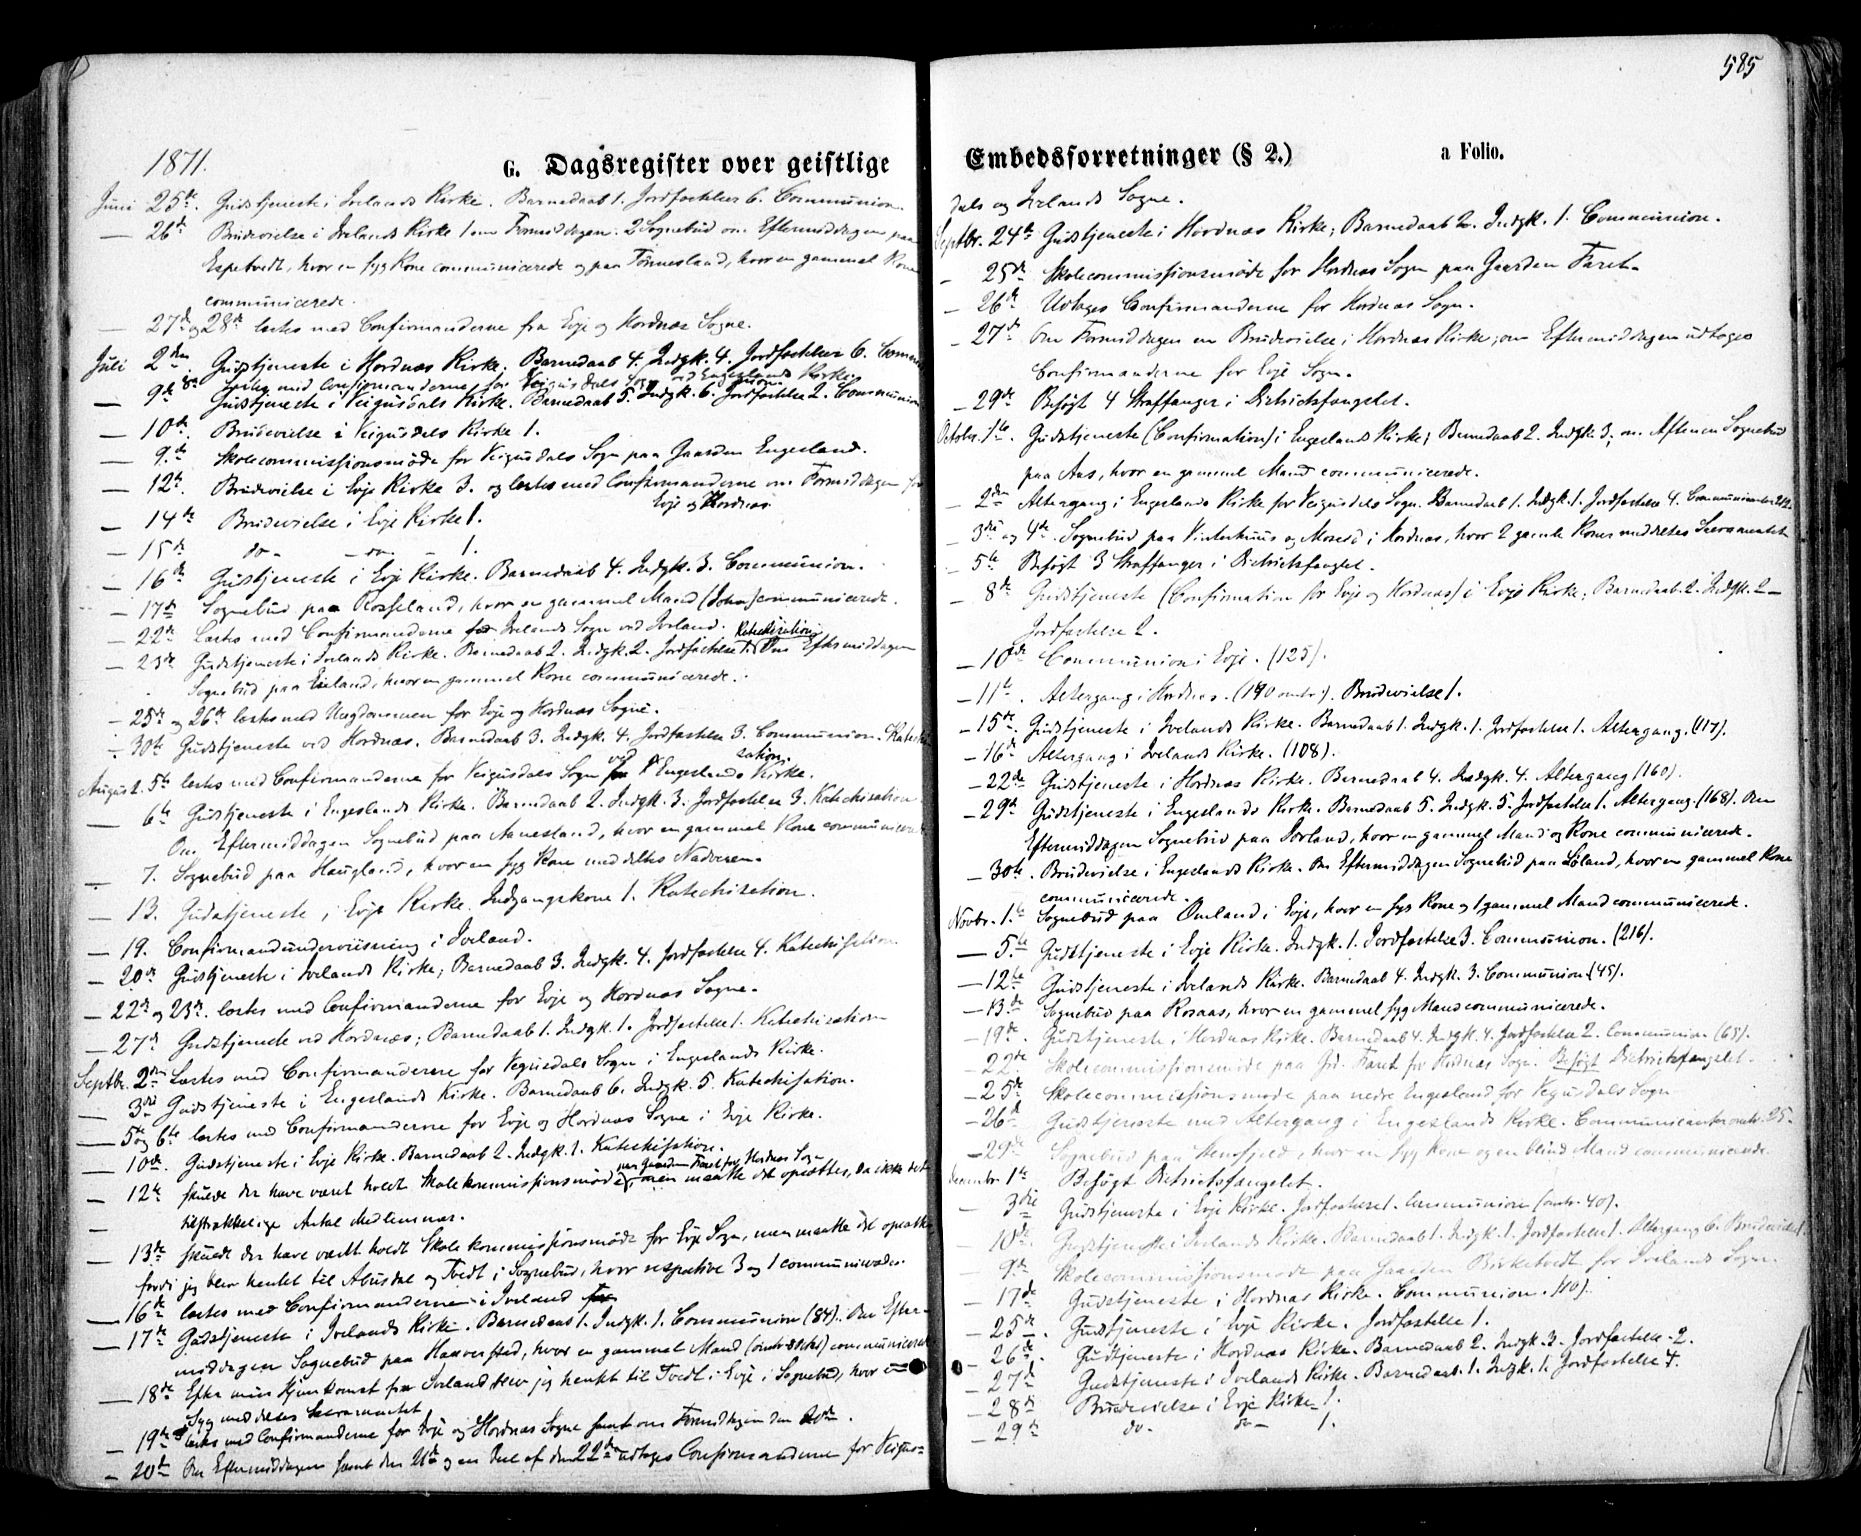 1871.
G. Dagsregister over geistlige
Juni 25de. Gudstjeneste i Ivelands Kirke. Barnedaab 1. Jordfæstelser 6. Communion.
— 26de Brudevielse i Ivelands Kirke 1 om Formiddagen. 2 Sognebud om Eftermiddagen paa
Espetvedt, hvor en syg Kone communicerede og paa Tønnesland, hvor en gammel Kone
communicerede.
— 27de og 28de læstes med Confirmanderne fra Evje og Hordnæs Sogne.
Juli 2den. Gudstjeneste i Hordnæs Kirke; Barnedaab 4. Indgk. 4. Jordfæstelser 6. Commun
8de læstes med Confirmanderne for Veigusdals Sogn ved Engeslands Kirke.
— 9de Gudstjeneste i Veigusdals Kirke. Barnedaab 5. Indgk. 6. Jordfæstelse 2. Communion
— 10de. Brudevielse i Veigusdals Kirke 1.
— 9de Skolecommissionsmøde for Veigusdals Sogn paa Gaarden Engesland.
— 12te. Brudevielse i Evje Kirke 3. og læstes med Confirmanderne om Formiddagen for
Evje og Hordnæs.
— 14de Brudevielse i Evje Kirke 1.
— 15de do — do — 1.
— 16de Gudstjeneste i Evje Kirke. Barnedaab 4. Indgk. 3. Communion.
— 17de Sognebud paa Rosseland, hvor en gammel Mand (John) communicerede.
— 22de Læstes med Confirmanderne for Ivelands Sogn ved Iveland.
Katechisation
— 23de Gudstjeneste i Ivelands Kirke. Barnedaab 2. Indgk. 2. Jordfæstelse 1. Om Eftermiddagen
Sognebud paa Eieland, hvor en gammel Kone communicerede.
— 25de og 26de læstes med Ungdommen for Evje og Hordnæs Sogne.
— 30te Gudstjeneste ved Hordnæs. Barnedaab 3. Indgk. 4. Jordfæstelse 3. Communion. Kateki
sation.
August. 5te læstes med Confirmanderne for Veigusdals Sogn ved Engeslands Kirke.
— 6te Gudstjeneste i Engeslands Kirke. Barnedaab 2. Indgk. 3. Jordfæstelse 3. Katechisation
Om Eftermiddagen Sognebud paa Aanesland, hvor en gammel Kone communicerede
— 7. Sognebud paa Haugland, hvor en syg Kone meddeltes Nadveren.
— 13. Gudstjeneste i Evje Kirke. Indgangskone 1. Katechisation.
— 19. Confirmandunderviisning i Iveland.
— 20de Gudstjeneste i Ivelands Kirke; Barnedaab 3. Indgk. 4. Jordfæstelse 4. Katechisation
— 22de og 23de. læstes med Confirmanderne for Evje og Hordnæs Sogne.
— 27de Gudstjeneste ved Hordnæs; Barnedaab 1. Indgk. 1. Jordfæstelse 1. Katechisation
Septbr. 2den Læstes med Confirmanderne for Vegusdals Sogn i Engeslands Kirke.
— 3die Gudstjeneste i Engeslands Kirke. Barnedaab 6. Indgk. 5. Katechisation.
— 5te og 6te læstes med Confirmanderne for Evje og Hordnæs Sogne i Evje Kirke.
— 10de. Gudstjeneste i Evje Kirke. Barnedaab 2. Indgk. 1. Katechisation.
paa Gaarden Faret for Hordnæs Sogn
— 12te skulde der have været holdt Skolekommissionsmøde, men maatte det opsættes, da ikke det
tilstrækkelige Antal Medlemmer.
— 13de skulde der have været holdt Skolekommissionsmøde for Evje Sogn, men maatte det opsættes
fordi jeg blev hentet til Abusdal og Tvedt i Sognebud, hvor respective 3 og 1 communicerede.
— 16de læstes med Confirmanderne i Iveland
— 17de Gudstjeneste i Ivelands Kirke. Barnedaab 1. Indgk. 1. Communion (84). Om Efter-
middagen Sognebud paa Haaverstad, hvor en gammel Mand communicerede
— 18de Efter min Hjemkomst fra Iveland blev jeg hentet til Tvedt i Evje i Sognebud, hvor en
Syg meddeltes Sacramentet
— 19de læstes med Confirmanderne for Evje og Hordnæs Sogne samt om Formiddagen den 20de.
— 20de Om Eftermiddagen samt den 21de og en Deel af den 22de udtoges Confirmanderne for Veigus-
585
Embedsforretninger (§ 2.)
a Folio.
dals og Ivelands Sogne.
Septbr. 24de Gudstjeneste i Hordnæs Kirke; Barnedaab 2. Indgk. 1. Communion.
— 25de Skolecommissionsmøde for Hordnæs Sogn paa Gaarden Faret.
— 26de Udtoges Confirmanderne for Hordnæs Sogn.
— 27de Om Formiddagen en Brudevielse i Hordnæs Kirke; om Eftermiddagen udtoges
Confirmanderne for Evje Sogn.
— 29de Besøgt 4 Straffanger i Distriktsfængslet.
Octobr. 1ste. Gudstjeneste (Confirmation) i Engeslands Kirke; Barnedaab 2. Indgk. 3; om Aftenen Sognebud
paa Aas, hvor en gammel Mand communicerede.
— 2den Altergang i Engeslands Kirke for Veigusdals Sogn. Barnedaab 1. Indgk. 1. Jordfæstelse 4. Communicanter 212.
— 3die og 4de Sognebud paa Vinterhuus og Moseid i Hordnæs, hvor 2 gamle Koner meddeltes Sacramentet
— 5te Besøgt 3 Straffanger i Distriktsfængslet.
— 8de Gudstjeneste (Confirmation for Evje og Hordnæs) i Evje Kirke; Barnedaab 2. Indgk. 2 —
Jordfæstelse 2.
— 10de Communion i Evje. (125).
— 11te. Altergang i Hordnæs. (140 omtr.). Brudevielse 1.
— 15de. Gudstjeneste i Ivelands Kirke. Barnedaab 1. Indgk. 1. Jordfæstelse 1. Altergang. (117).
— 16de Altergang i Ivelands Kirke. (108).
— 22de Gudstjeneste i Hordnæs Kirke. Barnedaab 4. Indgk. 4. Altergang (160).
— 29de Gudstjeneste i Engeslands Kirke. Barnedaab 5. Indgk. 5. Jordfæstelse 1. Altergang. (168). Om
Eftermiddagen Sognebud paa Iveland, hvor en gammel Mand og Kone communicerede.
— 30te. Brudevielse i Engeslands Kirke. Om Eftermiddagen Sognebud paa Løland, hvor en gammel Kone
communicerede.
Novbr. 1ste Sognebud paa Omland i Evje, hvor en syg Kone og 1 gammel Mand communicerede.
— 5te Gudstjeneste i Evje Kirke. Indgk. 1. Jordfæstelse 3. Communion. (216).
— 12te Gudstjeneste i Ivelands Kirke. Barnedaab 4. Indgk. 3. Communion (45).
— 13de Sognebud paa Rosaas, hvor en gammel syg Mand communicerede.
— 19de Gudstjeneste i Hordnæs Kirke. Barnedaab 4. Indgk. 4. Jordfæstelse 2. Communion (65).
— 22de Skolecommissionsmøde paa Gd. Faret for Hordnæs Sogn. Besøgt Distriktsfængslet.
— 25de Skolecommissionsmøde paa nedre Engesland for Vegusdals Sogn
— 26de Gudstjeneste med Altergang i Engeslands Kirke. Communicanter omtr. 25.
— 29de Sognebud paa Stensfjeld, hvor en syg Kone og en blind Mand communicerede.
Decembr. 1ste Besøgt Distriktsfængslet.
— 3die Gudstjeneste i Evje Kirke. Jordfæstelse 1. Communion (omtr. 40).
— 10de Gudstjeneste i Ivelands Kirke. Barnedaab 1. Indgk. 1. Jordfæstelse 1. Altergang 6. Brudevielse 1.
— 9de Skolecommissionsmøde paa Gaarden Birketvedt for Ivelands Sogn.
— 17de Gudstjeneste i Hordnæs Kirke. Communion. (10).
— 25de. Gudstjeneste i Evje Kirke. Jordfæstelse 1.
— 26de. Gudstjeneste i Hordnæs Kirke. Barnedaab 2. Indgk. 3. Jordfæstelse 2.
— 27de Gudstjeneste i Ivelands Kirke. Barnedaab 1. Indgk. 1. Jordfæstelse 4.
— 28de Brudevielse i Evje Kirke 1.
— 29de do — do — 1.